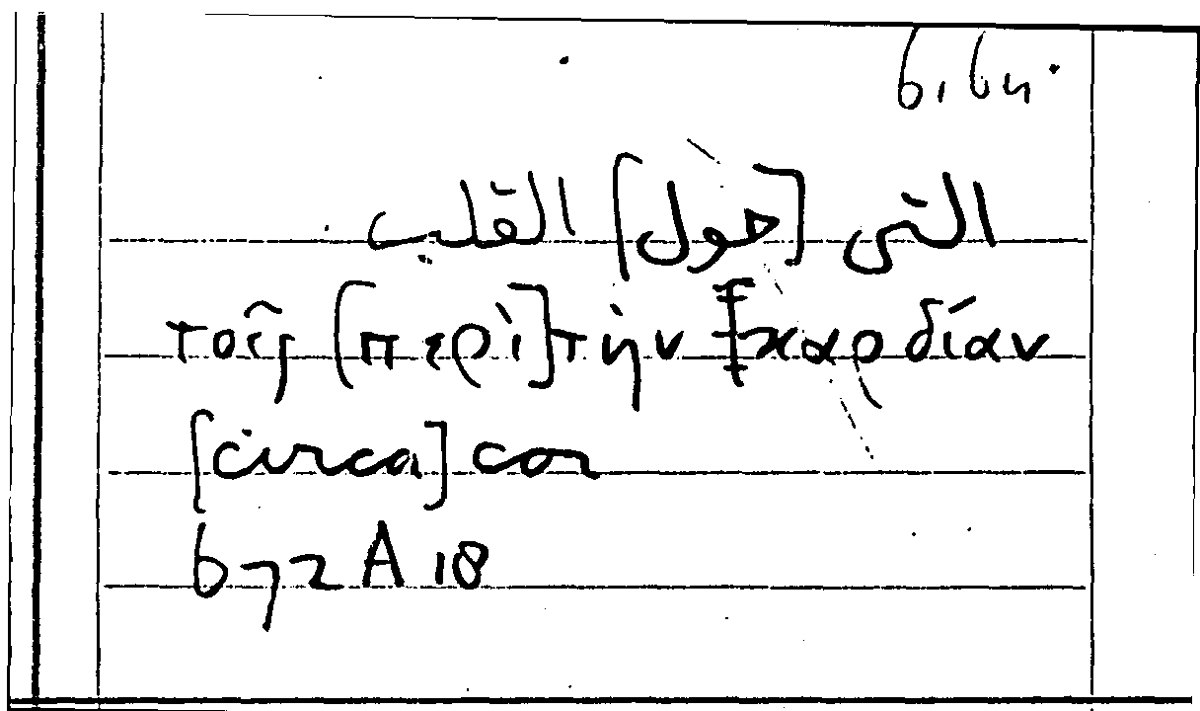 6,64.
التى [حول] القلب
τοῖς [περὶ] τὴν καρδίαν
[circa] cor
672 A 18